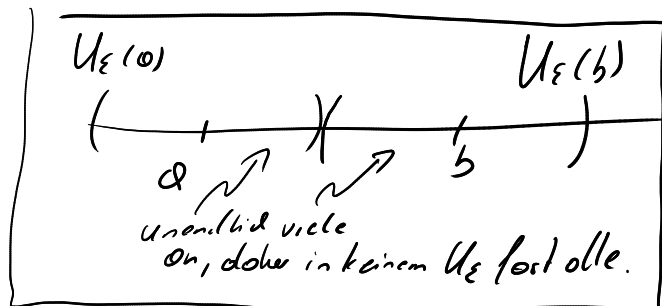 Uε(a) Uε(b)
a b
unendlich viele
an, daher in keinem Uε fast alle.